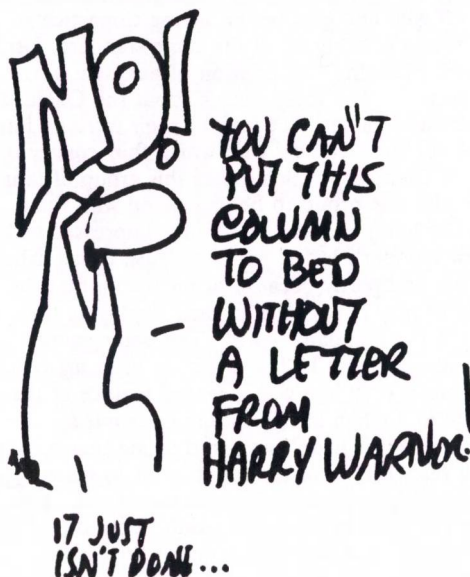 NO!
YOU CAN'T
PUT THIS
COLUMN
TO BED
WITHOUT
A LETTER
FROM
HARRY WARNOR!
IT JUST
ISN'T DONE...